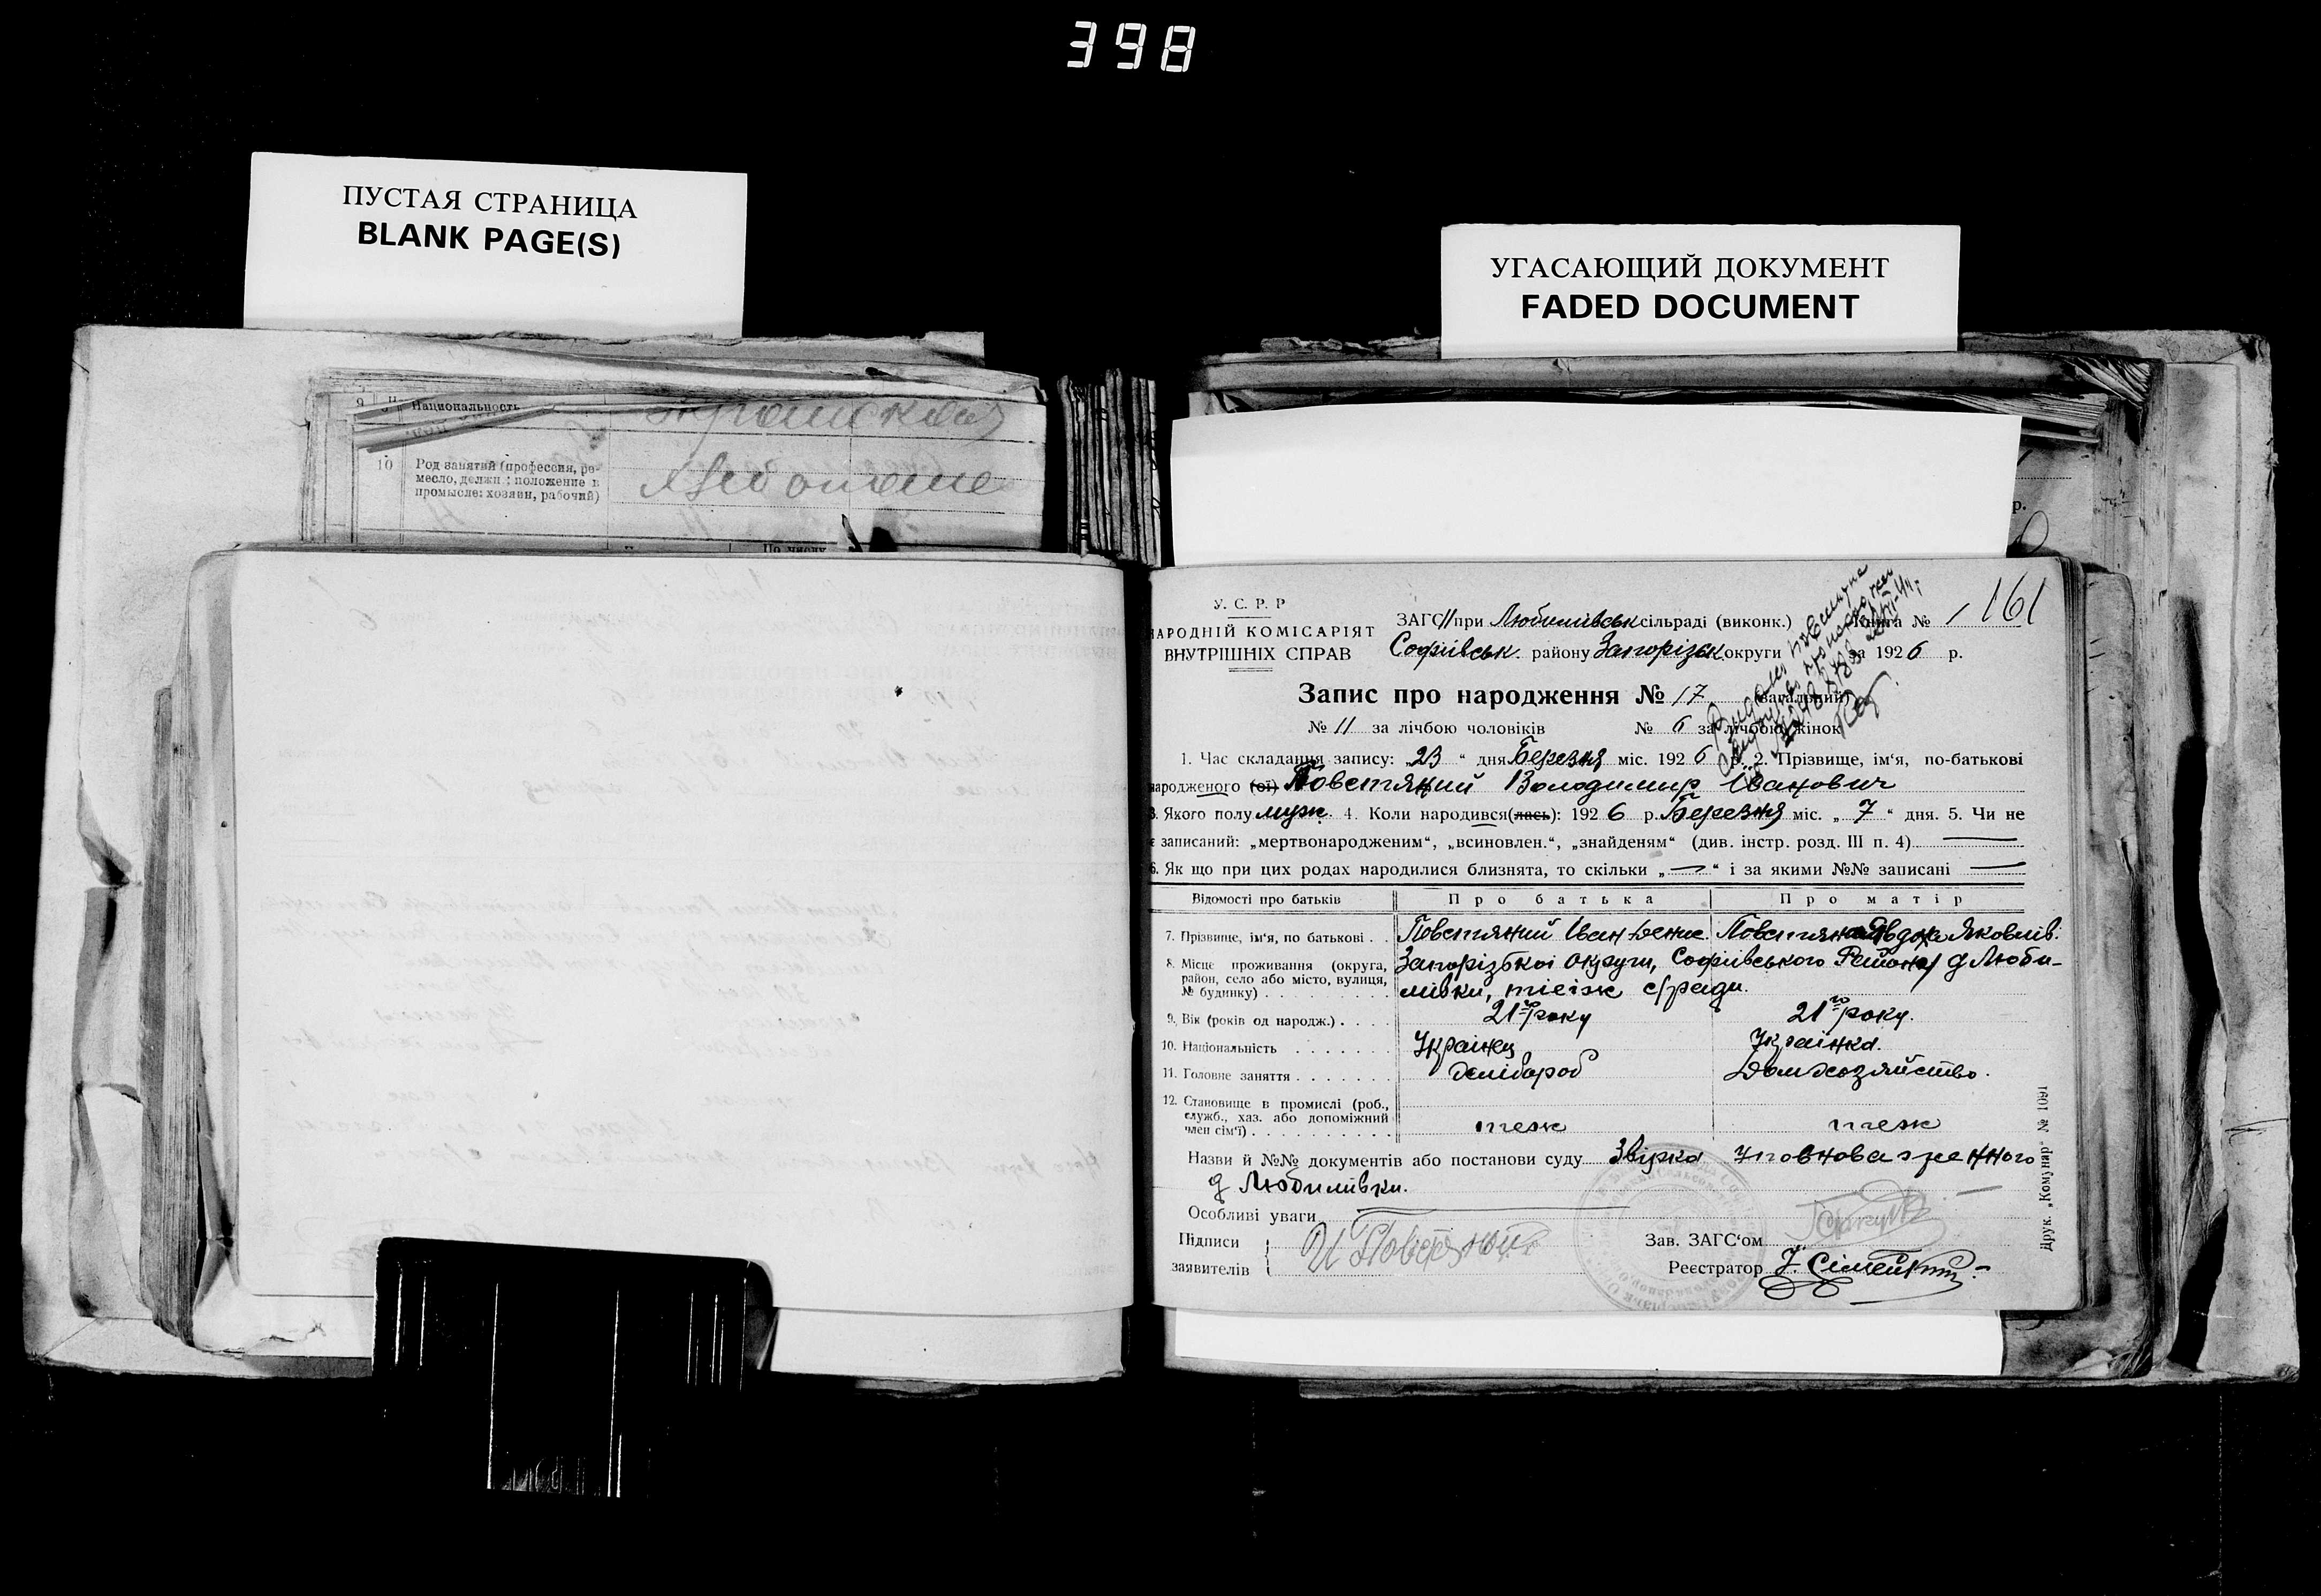 398
ПУСТАЯ СТРАНИЦА
BLANK PAGE(S)
УГАСАЮЩИЙ ДОКУМЕНТ
FADED DOCUMENT
9 Национальность
10 Род занятий (профессия, ре-
месло, должн.; положение в
промысле: хозяин, рабочий)
161
У. С. Р. Р
НАРОДНІЙ КОМІСАРІЯТ
ВНУТРІШНІХ СПРАВ
ЗАГС при Любимівськ сільраді (виконк.) Книга № 1
Софіївськ району Запорізьк округи за 1926 р.
Запис про народження № 17 (загальний)
№ 11 за лічбою чоловіків № 6 за лічбою жінок
1. Час складання запису: „23“ дня Березня міс. 1926 р. 2. Прізвище, ім‘я, по-батькові
народженого (ої) Повстяний Володимир Іванович
3. Якого полу муж. 4. Коли народився(лась): 1926 р. Березня міс. „7“ дня. 5. Чи не
є записаний: „мертвонародженим“, „всиновлен.“, „знайденям“ (див. інстр. розд. III п. 4)
6. Як що при цих родах народилися близнята, то скільки „—“ і за якими №№ записані —
Відомості про батьків Про батька Про матір
7. Прізвище, ім‘я, по батькові . . Повстяний Іван Денис. Повстяна Явдоха Яковлів.
8. Місце проживання (округа, район, село або місто, вулиця, № будинку) . . . Запорізької округи, Софіївського Району д Люби-
мівки, тієїж с/ради.
9. Вік (років од народж.) . . . . 21го року 21го року.
10. Національність . . . . . . . Українец Українка.
11. Головне заняття . . . . . . . Хлібороб Домхозяйство.
12. Становище в промислі (роб., служб., хаз. або допоміжний член сім‘ї) . . . теж теж
Назви й №№ документів або постанови суду Звірка уповноваженного
д Любимівки.
Особливі уваги
Підписи
заявителів
Зав. ЗАГС‘ом
Реєстратор
Друк. „Комунар“ № 1091